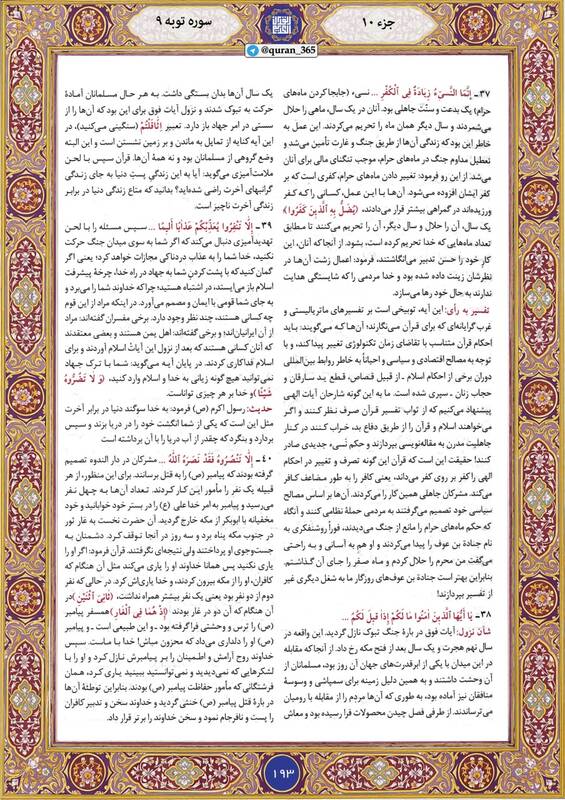 جزء ۱۰
سوره توبه ۹
@quran_365
۳۷- إِنَّمَا النَّسِيءُ زِيَادَةٌ فِي الْكُفْرِ ... نسیء (جابجا کردن ماه‌های
حرام)، یک بدعت و سنّت جاهلی بود. آنان در یک سال، ماهی را حلال
می‌شمردند و سال دیگر همان ماه را تحریم می‌کردند. این عمل به
خاطر این بود که زندگی آن‌ها از طریق جنگ و غارت تأمین می‌شد و
تعطیل مداوم جنگ در ماه‌های حرام، موجب تنگنای مالی برای آنان
می‌شد. از این رو فرمود: تغییر دادن ماه‌های حرام، کفری است که بر
کفر ایشان افزوده می‌شود. آن‌ها با این عمل، کسانی را که کفر
ورزیده‌اند در گمراهی بیشتر قرار می‌دادند، (يُضَلُّ بِهِ الَّذِينَ كَفَرُوا)
یک سال، آن را حلال و سال دیگر، آن را تحریم می‌کنند تا مطابق
تعداد ماه‌هایی که خدا تحریم کرده است، بشود. از آنجا که آنان، این
کار خود را حسن تدبیر می‌انگاشتند، فرمود: اعمال زشت آن‌ها در
نظرشان زینت داده شده بود و خدا مردمی را که شایستگی هدایت
ندارند به حال خود رها می‌سازد.
تفسیر به رأی: این آیه، توبیخی است بر تفسیرهای ماتریالیستی و
غرب گرایانه‌ای که برای قرآن می‌نگارند؛ آن‌ها که می‌گویند: باید
احکام قرآن متناسب با تقاضای زمان تکنولوژی تغییر پیدا کند، و با
توجه به مصالح اقتصادی و سیاسی و احیاناً به خاطر روابط بین‌المللی
دوران برخی از احکام اسلام - از قبیل قصاص، قطع ید سارقان و
حجاب زنان - سپری شده است. ما به این گونه شارحان آیات الهی
پیشنهاد می‌کنیم که از ثواب تفسیر قرآن صرف نظر کنند و اگر
می‌خواهند اسلام و قرآن را از طریق دفاع بد، خراب کنند در کنار
جاهلیت مدرن به مقاله‌نویسی بپردازند و حکم نسیء جدیدی صادر
کنند! حقیقت این است که قرآن این گونه تصرف و تغییر در احکام
الهی را کفر بر روی کفر می‌داند، یعنی کافر را به طور مضاعف کافر
می‌کند. مشرکان جاهلی همین کار را می‌کردند. آن‌ها بر اساس مصالح
سیاسی خود تصمیم می‌گرفتند به مردمی حمله نظامی کنند و آنگاه
که حکم ماه‌های حرام را مانع از جنگ می‌دیدند، فوراً روشنفکری به
نام جنادة بن عوف را پیدا می‌کردند و او هم به آسانی و به راحتی
می‌گفت من محرم را حلال کردم و ماه صفر را جای آن گذاشتم.
بنابراین بهتر است جنادة بن عوف‌های روزگار ما به شغل دیگری غیر
از تفسیر بپردازند!
۳۸- يَا أَيُّهَا الَّذِينَ آمَنُوا مَا لَكُمْ إِذَا قِيلَ لَكُمْ ...
شأن نزول: آیات فوق در بارهٔ جنگ تبوک نازل گردید. این واقعه در
سال نهم هجرت و یک سال بعد از فتح مکه رخ داد. از آنجا که مقابله
در این میدان با یکی از ابرقدرت‌های جهان آن روز بود، مسلمانان از
آن وحشت داشتند و به همین دلیل زمینه برای سمپاشی و وسوسهٔ
منافقان نیز آماده بود، به طوری که آن‌ها مردم را از مقابله با رومیان
می‌ترساندند. از طرفی فصل چیدن محصولات فرا رسیده بود و معاش
یک سال آن‌ها بدان بستگی داشت. به هر حال مسلمانان آمادهٔ
حرکت به تبوک شدند و نزول آیات فوق برای این بود که آن‌ها را از
سستی در امر جهاد باز دارد. تعبیر اثَّاقَلْتُمْ (سنگینی می‌کنید)، در
این آیه کنایه از تمایل به ماندن و بر زمین نشستن است و این البته
وضع گروهی از مسلمانان بود و نه همهٔ آن‌ها. قرآن سپس با لحن
ملامت‌آمیزی می‌گوید: آیا به این زندگیِ پستِ دنیا به جای زندگی
گرانبهای آخرت راضی شده‌اید؟ بدانید که متاع زندگی دنیا در برابر
زندگی آخرت ناچیز است.
۳۹- إِلَّا تَنْفِرُوا يُعَذِّبْكُمْ عَذَابًا أَلِيمًا ... سپس مسئله را با لحن
تهدیدآمیزی دنبال می‌کند که اگر شما به سوی میدان جنگ حرکت
نکنید، خدا شما را به عذاب دردناکی مجازات خواهد کرد؛ یعنی اگر
گمان کنید که با پشت کردنِ شما به جهاد در راه خدا، چرخهٔ پیشرفت
اسلام باز می‌ایستد، در اشتباه هستید؛ چرا که خداوند شما را می‌برد و
به جای شما قومی با ایمان و مصمم می‌آورد. در اینکه مراد از این قوم
چه کسانی هستند، چند نظر وجود دارد. برخی مفسران گفته‌اند: مراد
از آن ایرانیان‌اند؛ و برخی گفته‌اند: اهل یمن هستند و بعضی معتقدند
که آنان کسانی هستند که بعد از نزول این آیاتْ اسلام آوردند و برای
اسلام فداکاری کردند. در پایان آیه می‌گوید: شما با ترک جهاد
نمی‌توانید هیچ گونه زیانی به خدا و اسلام وارد کنید، (وَ لَا تَضُرُّوهُ
شَيْئًا) و خدا بر هر چیزی تواناست.
حدیث: رسول اکرم (ص) فرمود: به خدا سوگند دنیا در برابر آخرت
مثل این است که یکی از شما انگشت خود را در دریا بزند و سپس
بردارد و بنگرد که چقدر از آب دریا را با آن برداشته است
۴۰- إِلَّا تَنْصُرُوهُ فَقَدْ نَصَرَهُ اللَّهُ ... مشرکان در دار الندوه تصمیم
گرفته بودند که پیامبر (ص) را به قتل برسانند. برای این منظور، از هر
قبیله یک نفر را مأمور این کار کردند. تعداد آن‌ها به چهل نفر
می‌رسید و پیامبر به امر خدا علی (ع) را در بستر خود خوابانید و خود
مخفیانه با ابوبکر از مکه خارج گردید. آن حضرت نخست به غار ثور
در جنوب مکه پناه برد و سه روز در آنجا توقف کرد. دشمنان به
جست‌وجوی او پرداختند ولی نتیجه‌ای نگرفتند. قرآن فرمود: اگر او را
یاری نکنید پس همانا خداوند او را یاری می‌کند مثل آن هنگام که
کافران، او را از مکه بیرون کردند، و خدا یاری‌اش کرد. در حالی که نفر
دوم از دو نفر بود یعنی یک نفر بیشتر همراه نداشت، (ثَانِيَ اثْنَيْنِ) در
آن هنگام که آن دو در غار بودند (إِذْ هُمَا فِي الْغَارِ) همسفر پیامبر
(ص) را ترس و وحشتی فرا گرفته بود - و این طبیعی است - و پیامبر
(ص) او را دلداری می‌داد که محزون مباش! خدا با ماست. سپس
خداوند روح آرامش و اطمینان را بر پیامبرش نازل کرد و او را با
لشکرهایی که نمی‌دیدید و نمی‌توانستید ببینید یاری کرد، همان
فرشتگانی که مأمور حفاظت پیامبر (ص) بودند. بنابراین توطئهٔ آن‌ها
در بارهٔ قتل پیامبر (ص) خنثی گردید و خداوند سخن و تدبیر کافران
را پست و نافرجام نمود و سخن خداوند را برتر قرار داد.
۱۹۳